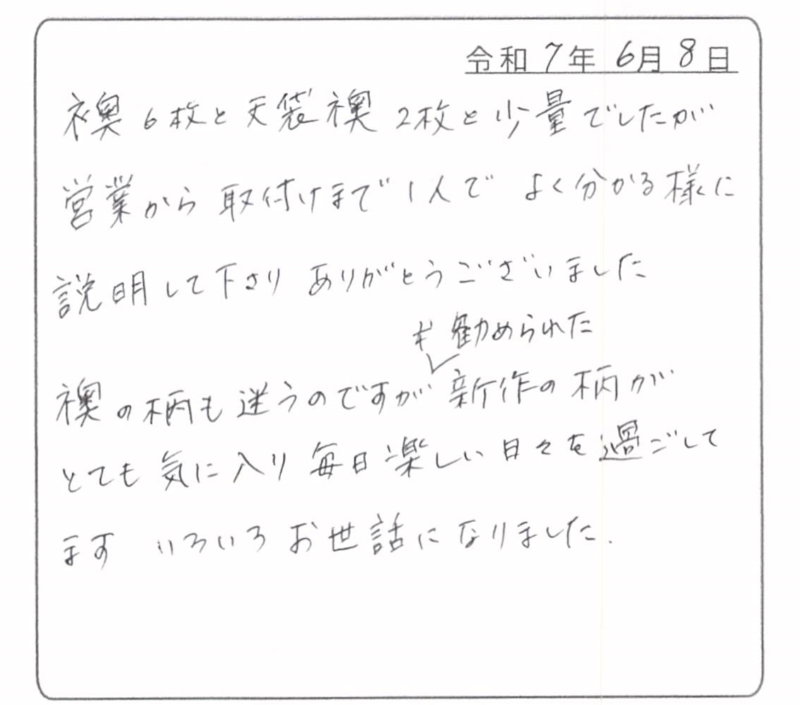 令和 7年 6月 8日
襖 6枚と天袋襖 2枚と少量でしたが
営業から 取付けまで 1人で よく分かる様に
説明して下さり ありがとうございました
勧められた
襖の柄も迷うのですが 新作の柄が
とても 気に入り 毎日楽しい日々を過ごして
ます いろいろ お世話になりました.